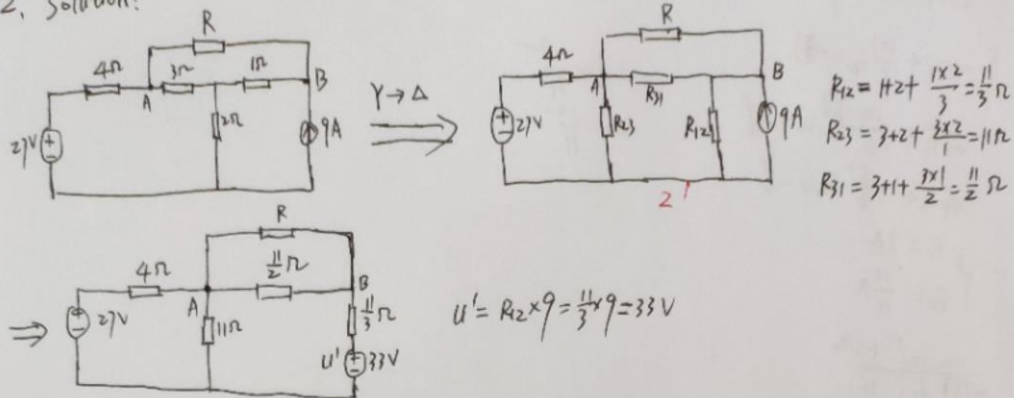 2. Solution:
R
4Ω A 3Ω 1Ω B
27V + − 2Ω 9A
Y → Δ
R
4Ω A R31 B
27V + − R23 R12 9A
2
R12 = 1+2+ 1×2/3 = 11/3 Ω
R23 = 3+2+ 3×2/1 = 11Ω
R31 = 3+1+ 3×1/2 = 11/2 Ω
⇒
R
4Ω A 11/2 Ω B
27V + − 11Ω 11/3 Ω
u' + − 33V
u' = R12×9 = 11/3 ×9 = 33V